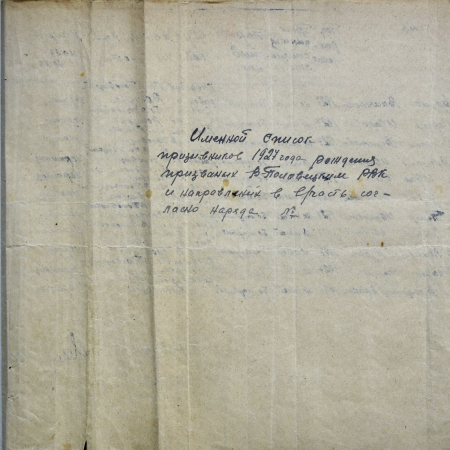 Именной список
призывников 1927 года рождения
призваных В-Половецким РВК
и направленых в в/часть, сог-
ласно наряда №